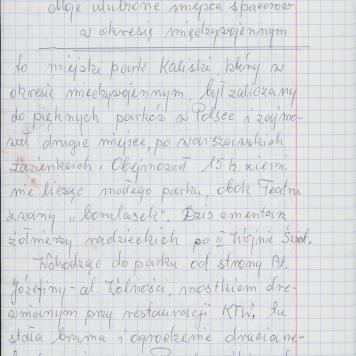 Moje ulubione miejsca spacerów
w okresie międzywojennym
to miejski park Kaliski, który w
okresie międzywojennym, był zaliczany
do pięknych parków w Polsce i zajmo-
wał drugie miejsce, po warszawskich
Łazienkach. Obejmował 15 h ziemi
nie licząc małego parku, obok Teatru
zwany "borulasek". Dziś cmentarz
żołnierzy radzieckich po II Wojnie Świat.
Wchodząc do parku od strony Al.
Józefiny - al. Wolności, mostkiem dre-
wnianym przy restauracji KTW. tu
stała brama i ogrodzenie druciane-